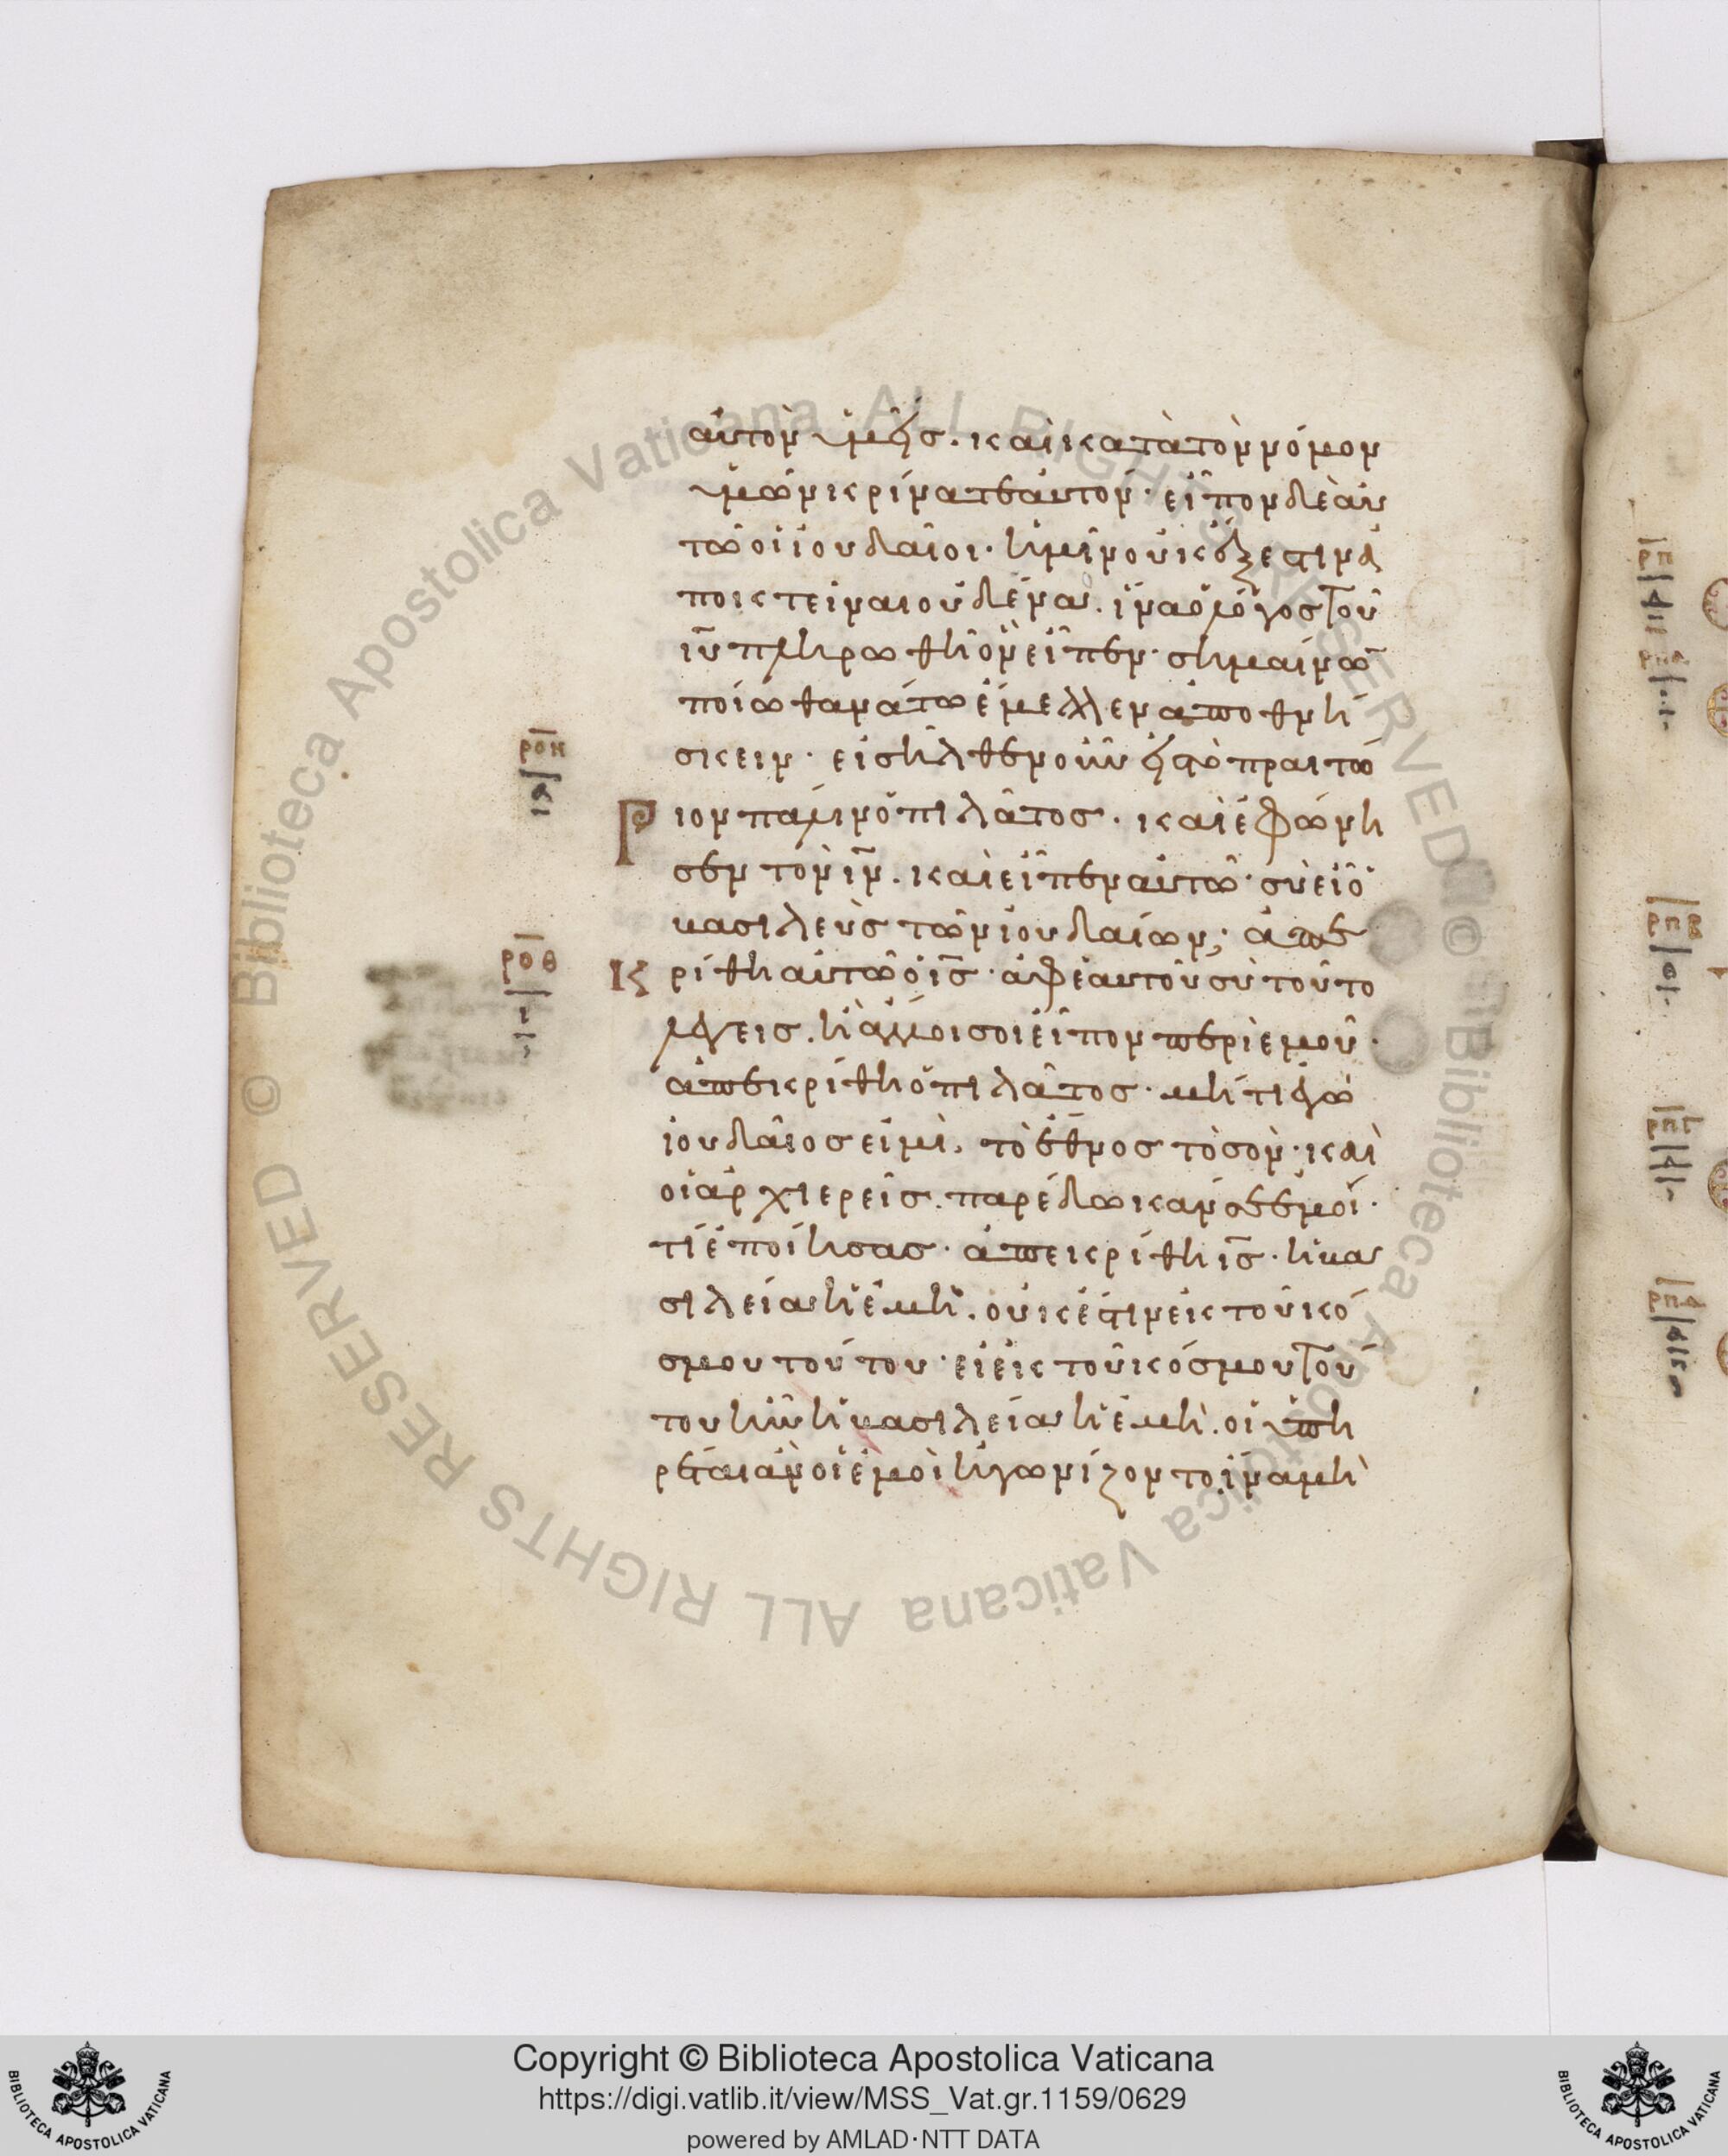 αὐτὸν ὑμεῖς. καὶ κατὰ τὸν νόμον
ὑμῶν κρίνατε αὐτόν· εἶπον δὲ αὐ
τῶ οἱ ἰουδαῖοι· ἡμῖν οὐκ ἔξεστιν ἀ
ποκτεῖναι οὐδένα. ἵνα ὁ λόγος τοῦ
ιυ πληρωθῆ ὃν εἶπεν· σημαίνων
ποίω θανάτω ἔμελλεν ἀποθνή
σκειν· εἰσῆλθεν οὖν εἰς τὸ πραιτώ
ριον πάλιν ὁ πιλᾶτος· καὶ ἐφώνη
σεν τὸν ιν. καὶ εἶπεν αὐτῶ· σὺ εἶ ὁ
βασιλεὺς τῶν ἰουδαίων; ἀπε
κρίθη αὐτῶ ὁ ις· ἀφ' ἑαυτοῦ σὺ τοῦτο
λέγεις. ἢ ἄλλοι σοι εἶπον περὶ ἐμοῦ·
ἀπεκρίθη ὁ πιλᾶτος· μήτι ἐγὼ
ἰουδαῖος εἰμί, τὸ ἔθνος τὸ σὸν· καὶ
οἱ ἀρχιερεῖς. παρέδωκάν σε ἐμοί·
τί ἐποίησας· ἀπεκρίθη ις· ἡ βα
σιλεία ἡ ἐμὴ. οὐκ ἔστιν ἐκ τοῦ κό
σμου τούτου· εἰ ἐκ τοῦ κόσμου τού
του ἦν ἡ βασιλεία ἡ ἐμὴ. οἱ ὑπη
ρέται ἂν οἱ ἐμοὶ ἠγωνίζοντο ἵνα μὴ
ροη
ια
ροθ
ι
Copyright © Biblioteca Apostolica Vaticana
https://digi.vatlib.it/view/MSS_Vat.gr.1159/0629
powered by AMLAD·NTT DATA
BIBLIOTECA APOSTOLICA VATICANA
BIBLIOTECA APOSTOLICA VATICANA
© Biblioteca Apostolica Vaticana ALL RIGHTS RESERVED
© Biblioteca Apostolica Vaticana ALL RIGHTS RESERVED